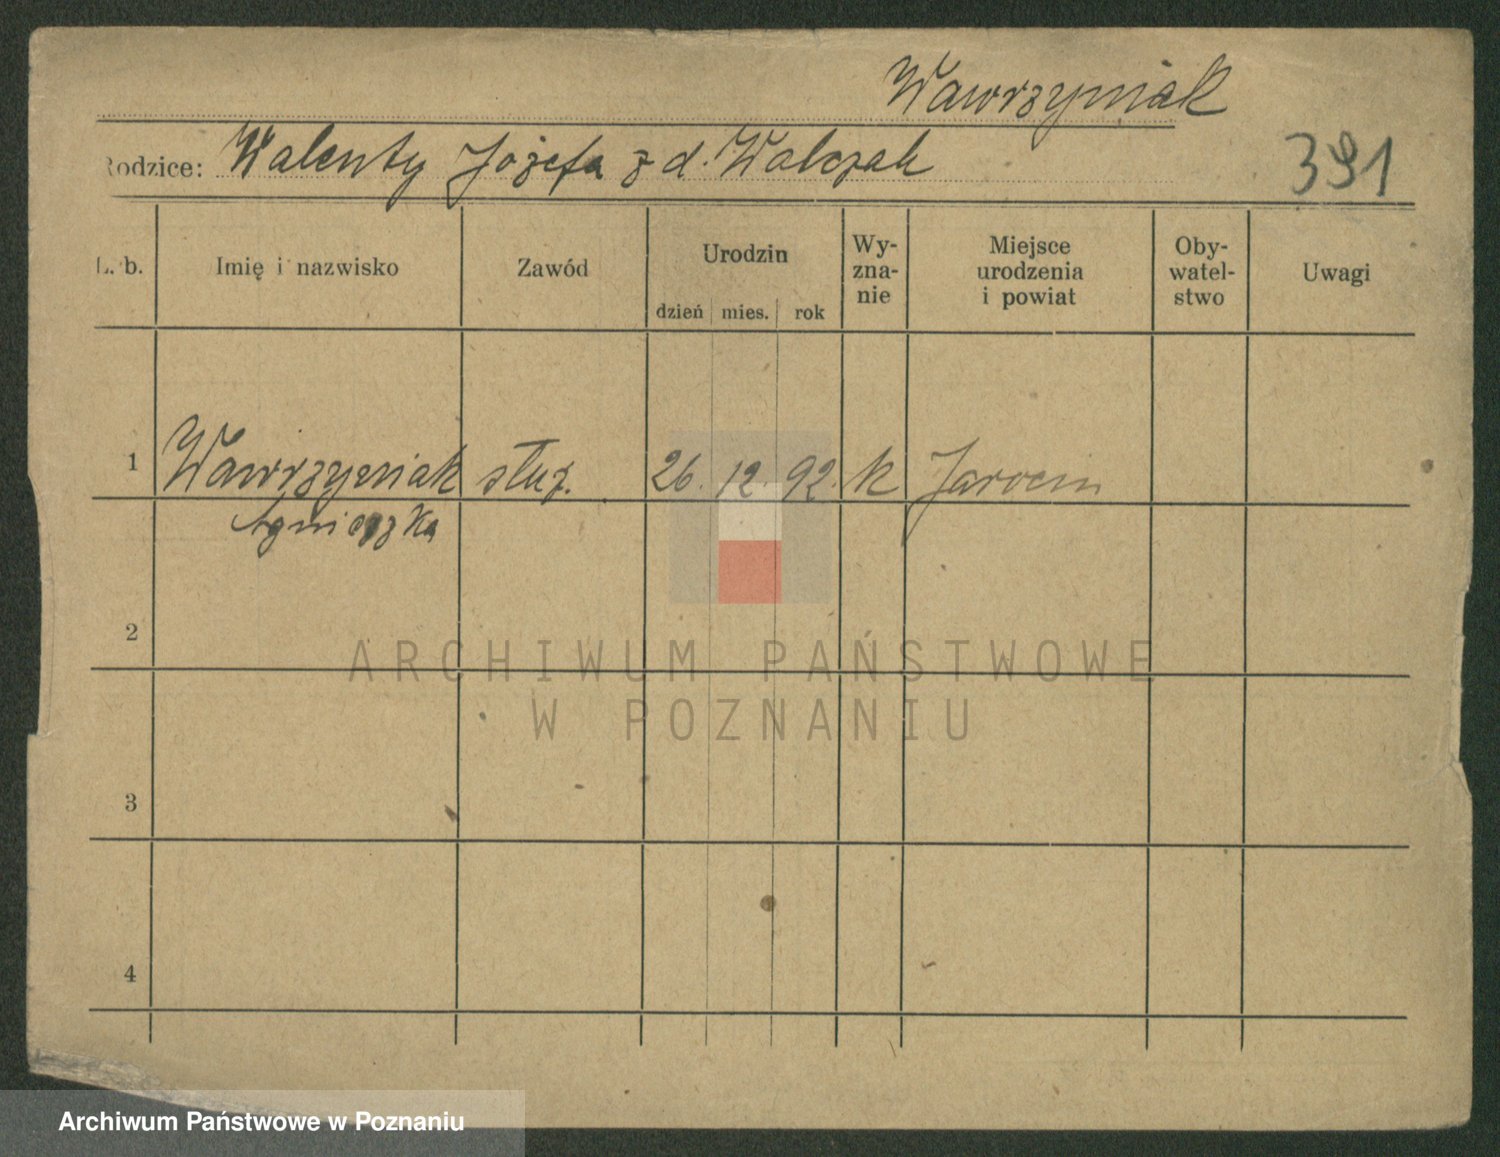 Wawrzyniak
Rodzice: Walenty Józefa z d. Walczak
391
L. b. Imię i nazwisko Zawód Urodzin dzień mies. rok Wy-zna-nie Miejsce urodzenia i powiat Oby-watel-stwo Uwagi
1 Wawrzyniak służ. 26. 12. 92. k Jarocin
Agnieszka
2
ARCHIWUM PAŃSTWOWE
W POZNANIU
3
4
Archiwum Państwowe w Poznaniu